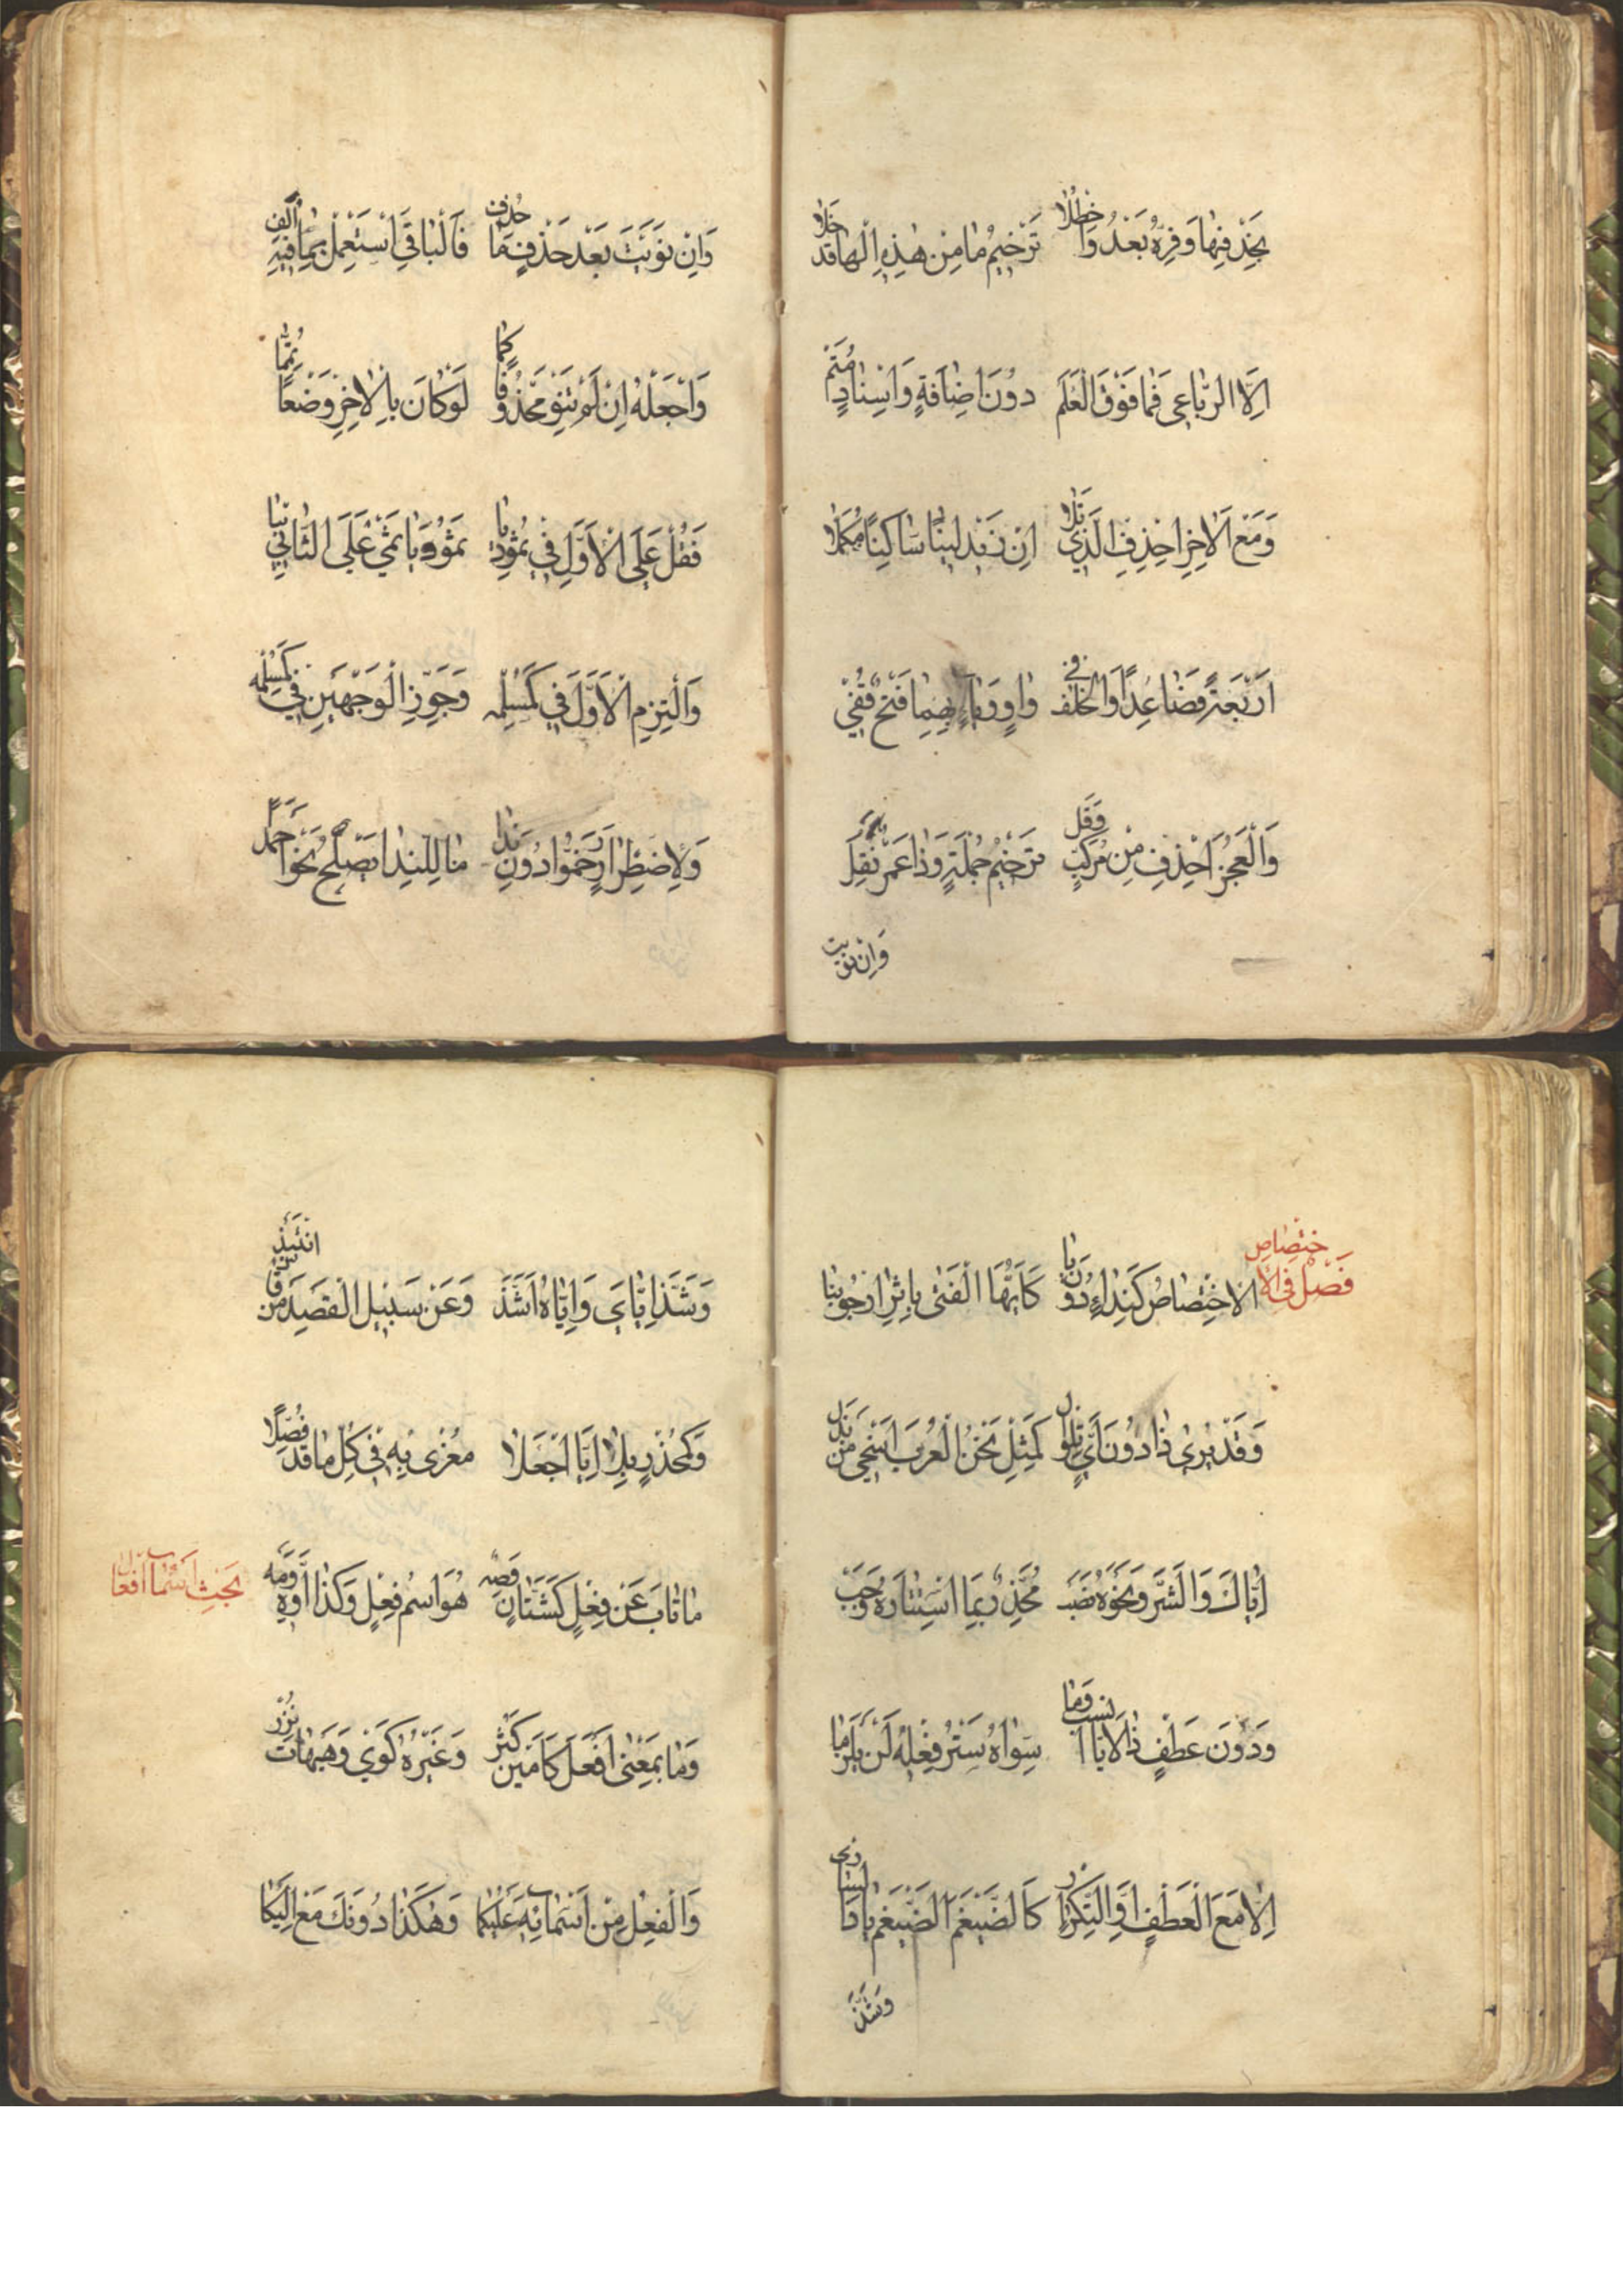 بحذفها وفره بعد واحظلا ترخيم ما من هذه الها قد خلا
الا الرباعي فما فوق العلم دون اضافة واسناد متم
ومع الاخر احذف الذي تلا ان زيد لينا ساكنا مكملا
اربعة فصاعدا والخلف في واو وياء بهما فتح قفي
والعجز احذف من مركب وقل ترخيم جملة وذا عمر نقل
وان نويت
وان نويت بعد حذف ما حذف فالباقي استعمل بما فيه الف
واجعله ان لم تنو محذوفا كما لو كان بالاخر وضعا تمما
فقل على الاول في ثمود يا ثمو ويا ثمي على الثاني بيا
والتزم الاول في كمسلمه وجوز الوجهين في كمسلمه
ولاضطرار رخموا دون ندا ما للندا يصلح نحو احمدا
فصل في الاختصاص
الاختصاص كنداء دون يا كايها الفتى باثر ارجونيا
وقد يرى ذا دون اي تلو ال كمثل نحن العرب اسخى من بذل
اياك والشر ونحوه نصب محذر بما استتاره وجب
ودون عطف ذا لايا انسب وما سواه ستر فعله لن يلزما
الا مع العطف او التكرار كالضيغم الضيغم يا ذا الساري
وشذ
وشذ اياي واياه اشذ وعن سبيل القصد من قاس انتبذ
وكمحذر بلا ايا اجعلا مغرى به في كل ما قد فصلا
بحث اسماء افعال
ما ناب عن فعل كشتان وصه هو اسم فعل وكذا اوه ومه
وما بمعنى افعل كامين كثر وغيره كوي وهيهات نزر
والفعل من اسمائه عليكا وهكذا دونك مع اليكا